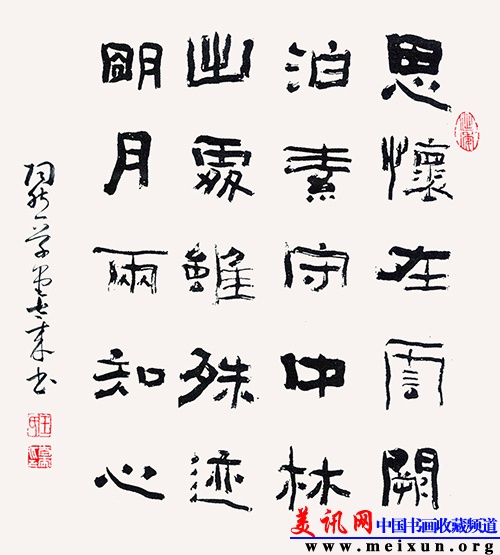 思懷在雲闕
泊素守中林
出處雖殊迹
明月兩知心
美讯网 中国书画收藏频道
www.meixun.org